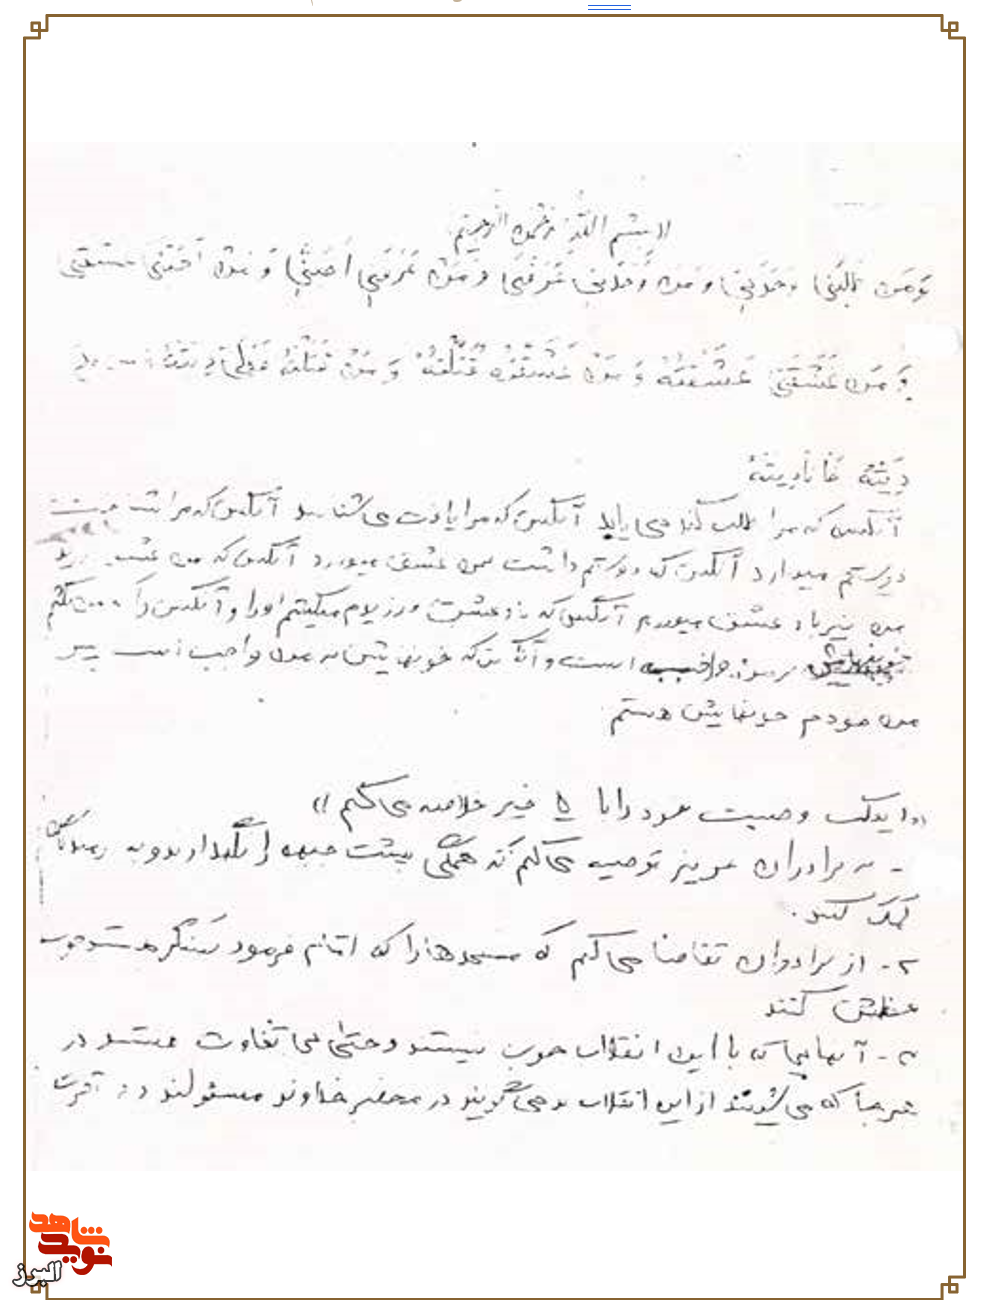 بسم الله الرحمن الرحیم
وَمَن طَلَبَنی وَجَدَنی وَ مَن وَجَدَنی عَرَفَنی وَ مَنْ عَرَفَنی اَحَبَّنی وَ مَنْ اَحَبَّنی عشقنی
وَ مَن عَشَقَنی عَشَقتُهُ وَ مَنْ عَشَقتُهُ قَتَلْتُهُ وَ مَنْ قَتَلْتُهُ فَعَلَیَّ دِیَتُهُ
دِیَتُهُ فَاَنَا دِیَتُهُ
آنکس که مرا طلب کند می یابد آنکس که مرا یافت می شناسد آنکس که مرا شناخت
دوستم میدارد آنکس که دوستم داشت بمن عشق میورزد آنکس که بمن عشق ورزید
من نیز باو عشق میورزم آنکس که باو عشق ورزیدم میکشم او را و آنکس را که من بکشم
خونبهایش بر من واجب است و آنکس که خونبهایش بر من واجب است پس
من خودم خونبهایش هستم
((اینک وصیت خود را با خیر خلاصه می کنم))
- به برادران عزیز توصیه می کنم که همگی پشت جبهه را نگهدارند و به رزمندگان
کمک کنند.
۲- از برادران تقاضا می کنم که مسجدها را که امام فرمود سنگر هست خوب
حفظش کنند
۳- آنهایی که با این انقلاب خوب نیستند و حتی بی تفاوت هستند در
هر جا که می شینند از این انقلاب بد می گویند در محضر خداوند مسئولند و در آخرت
شاهد
نوید
البرز